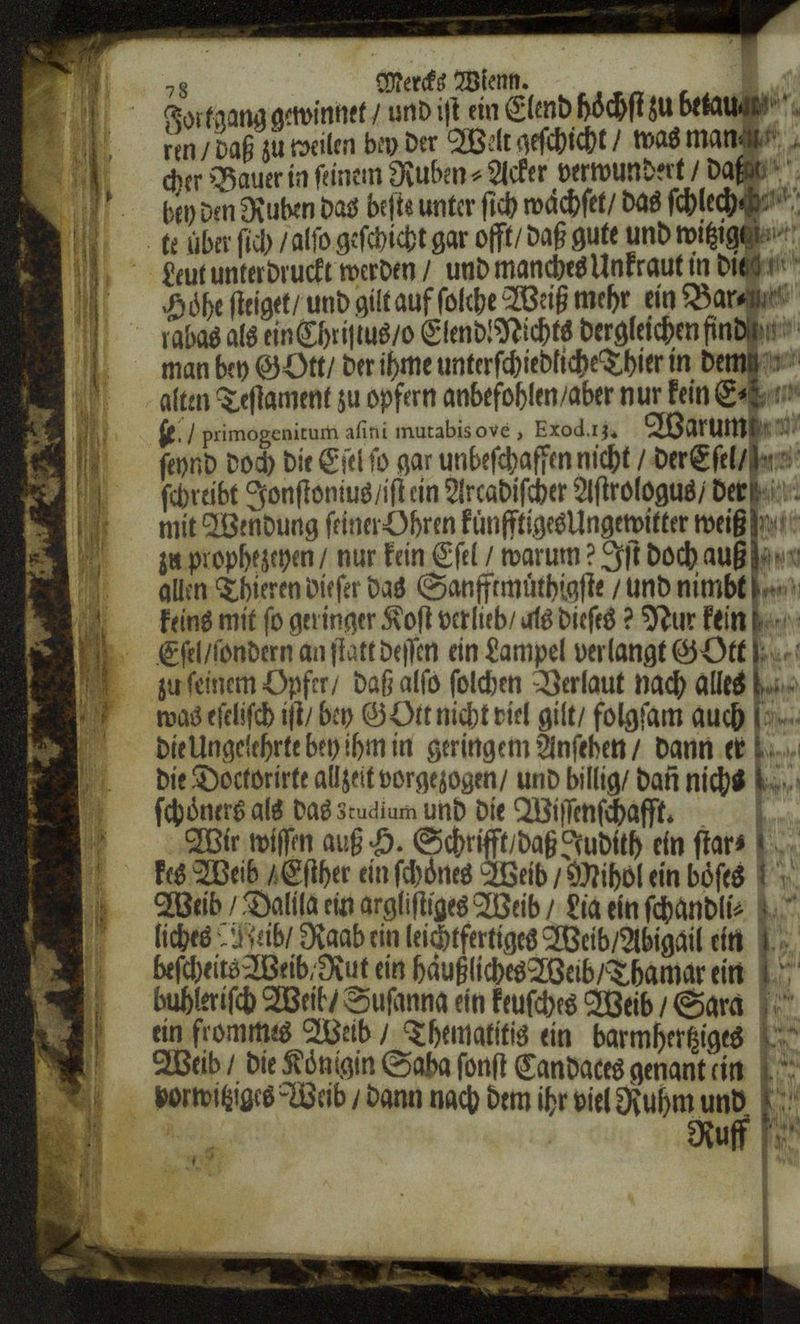 78 Mercks Wienn.
Fortgang gewinnet / und ist ein Elend höchst zu betau-
ren / daß zu weilen bey der Welt geschicht / was man-
cher Bauer in seinem Ruben-Acker verwundert / daß
bey den Ruben das beste unter sich wächset / das schlech-
te über sich / also geschicht gar offt / daß gute und witzige
Leut unterdruckt werden / und manches Unkraut in die
Höhe steiget / und gilt auf solche Weiß mehr ein Bar-
rabas als ein Christus / o Elend! Nichts dergleichen find
man bey GOtt / der ihme unterschiedliche Thier in dem
alten Testament zu opfern anbefohlen / aber nur kein E-
sel / primogenitum asini mutabis ove, Exod. 13. Warum
seynd doch die Esel so gar unbeschaffen nicht / der Esel /
schreibt Jonstonius / ist ein Arcadischer Astrologus / der
mit Wendung seiner Ohren künfftiges Ungewitter weiß
zu prophezeyen / nur kein Esel / warum? Ist doch auß
allen Thieren dieser das Sanfftmüthigste / und nimbt
keins mit so geringer Kost verlieb / als dieses? Nur kein
Esel / sondern an statt dessen ein Lampel verlangt GOtt
zu seinem Opfer / daß also solchen Verlaut nach alles
was eselisch ist / bey GOtt nicht viel gilt / folgsam auch
die Ungelehrte bey ihm in geringem Ansehen / dann er
die Doctorirte allzeit vorgezogen / und billig / dañ nichs
schöners als das Studium und die Wissenschafft.
Wir wissen auß H. Schrifft / daß Judith ein star-
kes Weib / Esther ein schönes Weib / Mihol ein böses
Weib / Dalila ein argl­istiges Weib / Lia ein schandli-
liches Weib / Raab ein leichtfertiges Weib / Abigail ein
bescheits Weib / Rut ein häußliches Weib / Thamar ein
buhlerisch Weib / Susanna ein keusches Weib / Sara
ein frommes Weib / Thematitis ein barmhertziges
Weib / die Königin Saba sonst Candaces genant ein
vorwitziges Weib / dann nach dem ihr viel Ruhm und
Ruff